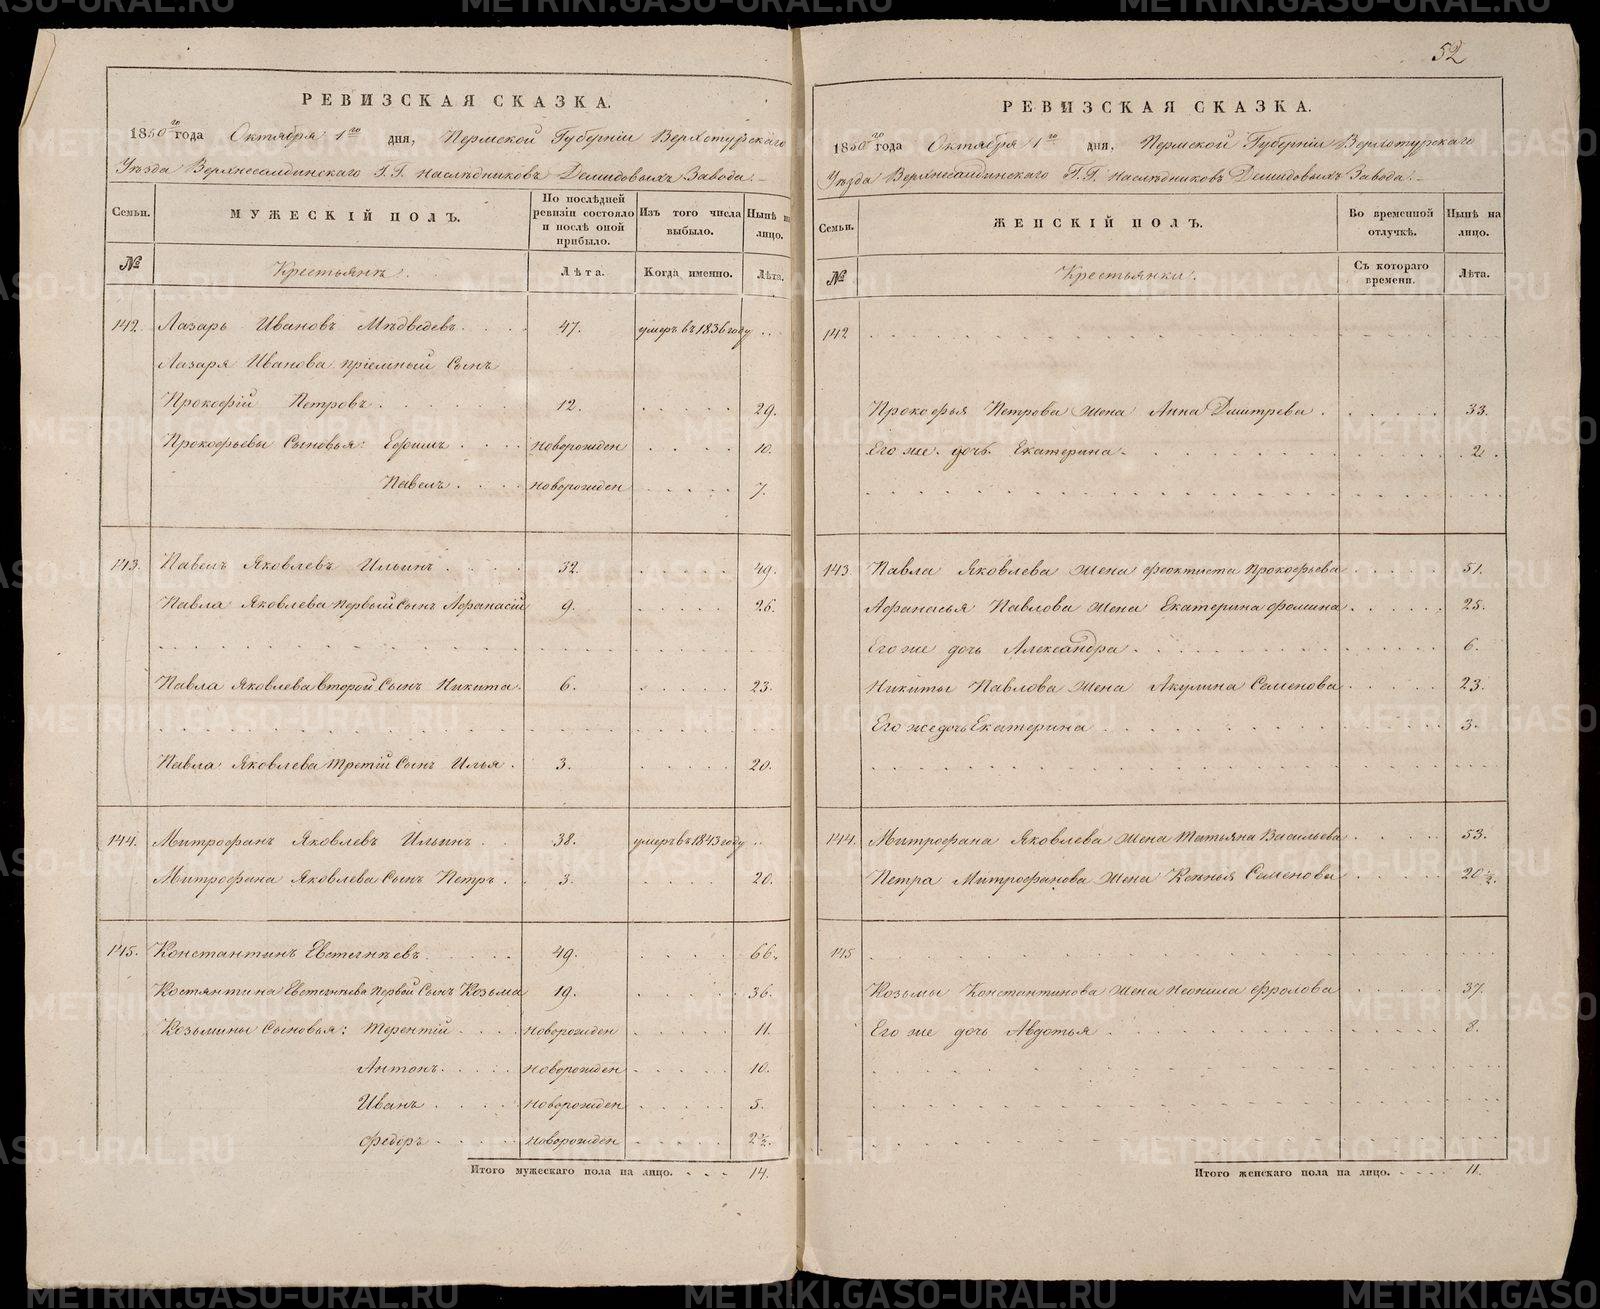 РЕВИЗСКАЯ СКАЗКА.
1850го года Октября 1го дня, Пермской Губерніи Верхотурскаго
Уѣзда Верхнесалдинскаго Г.Г. Наслѣдниковъ Демидовыхъ Завода.
Семьи. МУЖЕСКІЙ ПОЛЪ. По послѣдней ревизіи состояло и послѣ оной прибыло. Изъ того числа выбыло. Нынѣ на лицо.
№ Крестьянъ. Лѣта. Когда именно. Лѣта.
142. Лазарь Ивановъ Мѣдведевъ 47. умеръ въ 1836 году
Лазаря Иванова пріемный Сынъ
Прокофій Петровъ 12. 29.
Прокофьевы Сыновья: Ефимъ новорожден 10.
Павелъ новорожден 7.
143. Павелъ Яковлевъ Ильинъ 32. 49.
Павла Яковлева первый сынъ Афанасій 9. 26.
Павла Яковлева второй Сынъ Никита 6. 23.
Павла Яковлева третій Сынъ Илья 3. 20.
144. Митрофанъ Яковлевъ Ильинъ 38. умеръ въ 1843 году
Митрофана Яковлева Сынъ Петръ 3. 20.
145. Константинъ Евстегнѣевъ 49. 66.
Костянтина Евстегнѣева Первой Сынъ Козьма 19. 36.
Козьмины Сыновья: Терентій новорожден 11.
Антонъ новорожден 10.
Иванъ новорожден 5.
Федоръ новорожден 2½.
Итого мужескаго пола на лицо. 14.
52
РЕВИЗСКАЯ СКАЗКА.
1850го года Октября 1го дня, Пермской Губерніи Верхотурскаго
Уѣзда Верхнесалдинскаго Г.Г. Наслѣдниковъ Демидовыхъ Завода.
Семьи. ЖЕНСКІЙ ПОЛЪ. Во временной отлучкѣ. Нынѣ на лицо.
№ Крестьянки. Съ котораго времени. Лѣта.
142
Прокофья Петрова жена Анна Дмитрева 33.
Его же дочь Екатерина 2.
143. Павла Яковлева жена Феоктиста Прокофьева 51.
Афанасья Павлова жена Екатерина Фомина 25.
Его же дочь Александра 6.
Никиты Павлова жена Акулина Семенова 23.
Его же дочь Екатерина 3.
144. Митрофана Яковлева жена Татьяна Васильева 53.
Петра Митрофанова жена Ксенья Семенова 20½.
145
Козьмы Константинова жена Неонила Фролова 37.
Его же дочь Авдотья 8.
Итого женскаго пола на лицо. 11.
METRIKI.GASO-URAL.RU